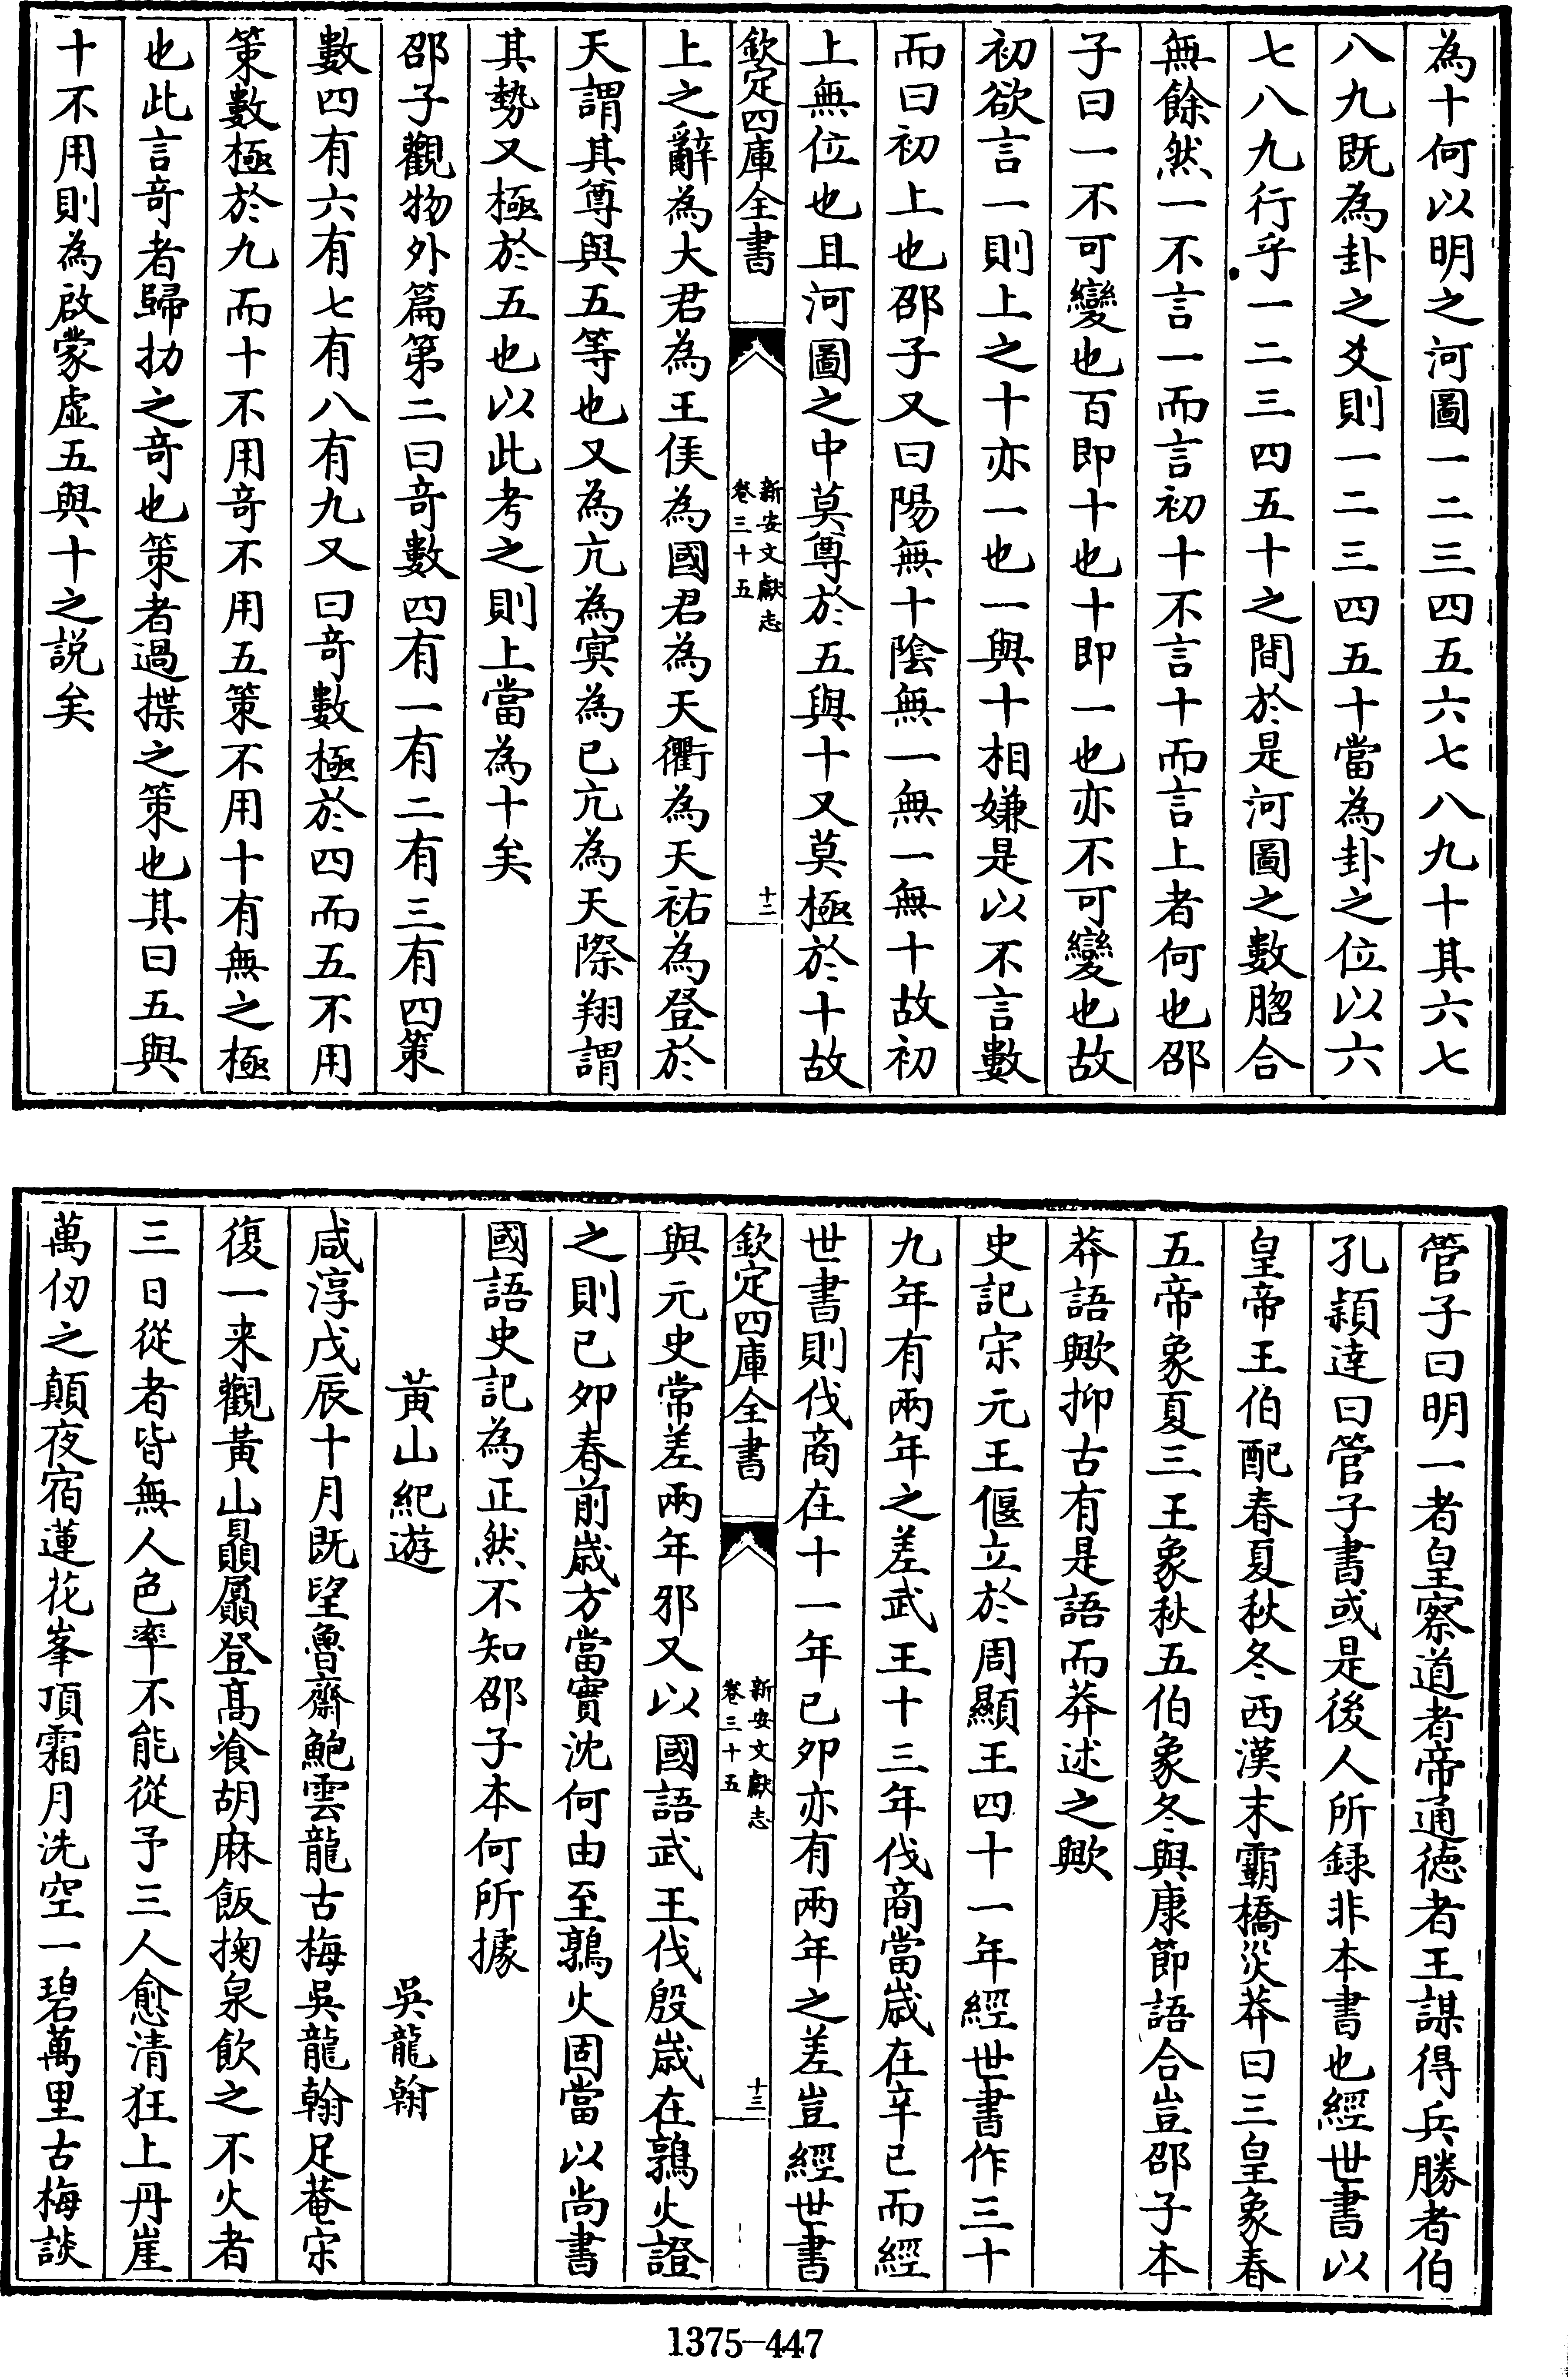 為十何以明之河圖一二三四五六七八九十其六七
八九既為卦之爻則一二三四五十當為卦之位以六
七八九行乎一二三四五十之間於是河圖之數脗合
無餘然一不言一而言初十不言十而言上者何也邵
子曰一不可變也百即十也十即一也亦不可變也故
初欲言一則上之十亦一也一與十相嫌是以不言數
而曰初上也邵子又曰陽無十陰無一無一無十故初
上無位也且河圖之中莫尊於五與十又莫極於十故
欽定四庫全書
新安文獻志
卷三十五
十二
上之辭為大君為王侯為國君為天衢為天祐為登於
天謂其尊與五等也又為亢為寞為已亢為天際翔謂
其勢又極於五也以此考之則上當為十矣
邵子觀物外篇第二曰奇數四有一有二有三有四策
數四有六有七有八有九又曰奇數極於四而五不用
策數極於九而十不用奇不用五策不用十有無之極
也此言奇者歸扐之奇也策者過揲之策也其曰五與
十不用則為啟蒙虛五與十之説矣
管子曰明一者皇察道者帝通徳者王謀得兵勝者伯
孔穎達曰管子書或是後人所録非本書也經世書以
皇帝王伯配春夏秋冬西漢末霸橋災莽曰三皇象春
五帝象夏三王象秋五伯象冬與康節語合豈邵子本
莽語歟抑古有是語而莽述之歟
史記宋元王偃立於周顯王四十一年經世書作三十
九年有兩年之差武王十三年伐商當歲在辛已而經
世書則伐商在十一年已夘亦有兩年之差豈經世書
欽定四庫全書
新安文獻志
卷三十五
十三
與元史常差兩年邪又以國語武王伐殷歲在鶉火證
之則已夘春前歲方當實沈何由至鶉火固當以尚書
國語史記為正然不知邵子本何所據
黃山紀遊
吳龍翰
咸淳戊辰十月既望魯齋鮑雲龍古梅吳龍翰足菴宋
復一来觀黃山贔屭登髙飡胡麻飯掬泉飲之不火者
三日從者皆無人色率不能從予三人愈清狂上丹崖
萬仞之顛夜宿蓮花峯頂霜月洗空一碧萬里古梅談
1375-447